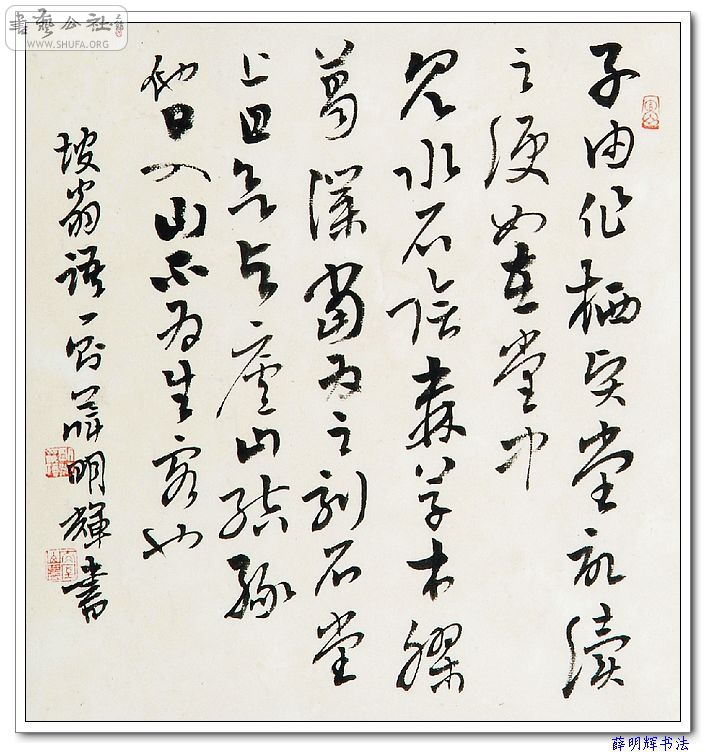 書藝公社
WWW.SHUFA.ORG
子由作栖賢堂記讀
之便如在堂中
見水石陰森草木膠
葛僕當為之刻石堂
上且欲與廬山結緣
他日入山不為生客也
坡翁語一則薛明輝書
薛明辉书法